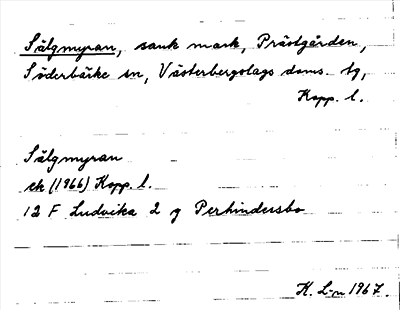 Sälgmyran, sank mark, Prästgården,
Söderbärke sn, Västerbergslags doms. tg,
Kopp. l.
Sälgmyran
ek (1966) Kopp. l.
12 F Ludvika 2 g Perhindersbo
K. L-n 1967.